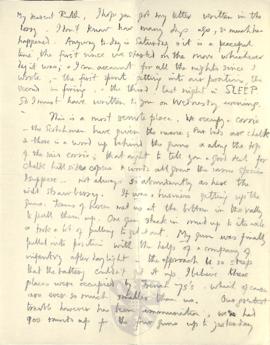 My dearest Ruth, I hope you got my letter written in the
lorry. I don't know how many days ago, so much has
happened. Anyway to day is Saturday & it is a peaceful
time the first since we started on the move whichever
day it was; I can account for all the nights since I
wrote – the first spent getting into our position, the
second in firing, – the third, last night in SLEEP
So I must have written to you on Wednesday evening.
This is a most remarkable place, we occupy – corrie
the Scotchmen have given the name; but sides are chalk
& there is a wood up behind the guns & along the top
of the main corrie; that ought to tell you a good deal for
chalk hills & copses & woods all grow the same species
I suppose, – not always so abundantly as here the
wild strawberry. It was a business getting up the
guns. Teams of horses met us at the bottom in the valley
to pull them up. One gun stuck in mud up to its axle
& took a lot of pulling to get it out. My gun was finally
pulled into position with the help of a company of
infantry after daylight – the approach is so steep
that the battery couldn't get it up. I believe these
places were occupied by French 75's which of course
are ever so much smaller than ours. Our greatest
trouble however has been ammunition; we've had
900 rounds up for the two guns up to yesterday